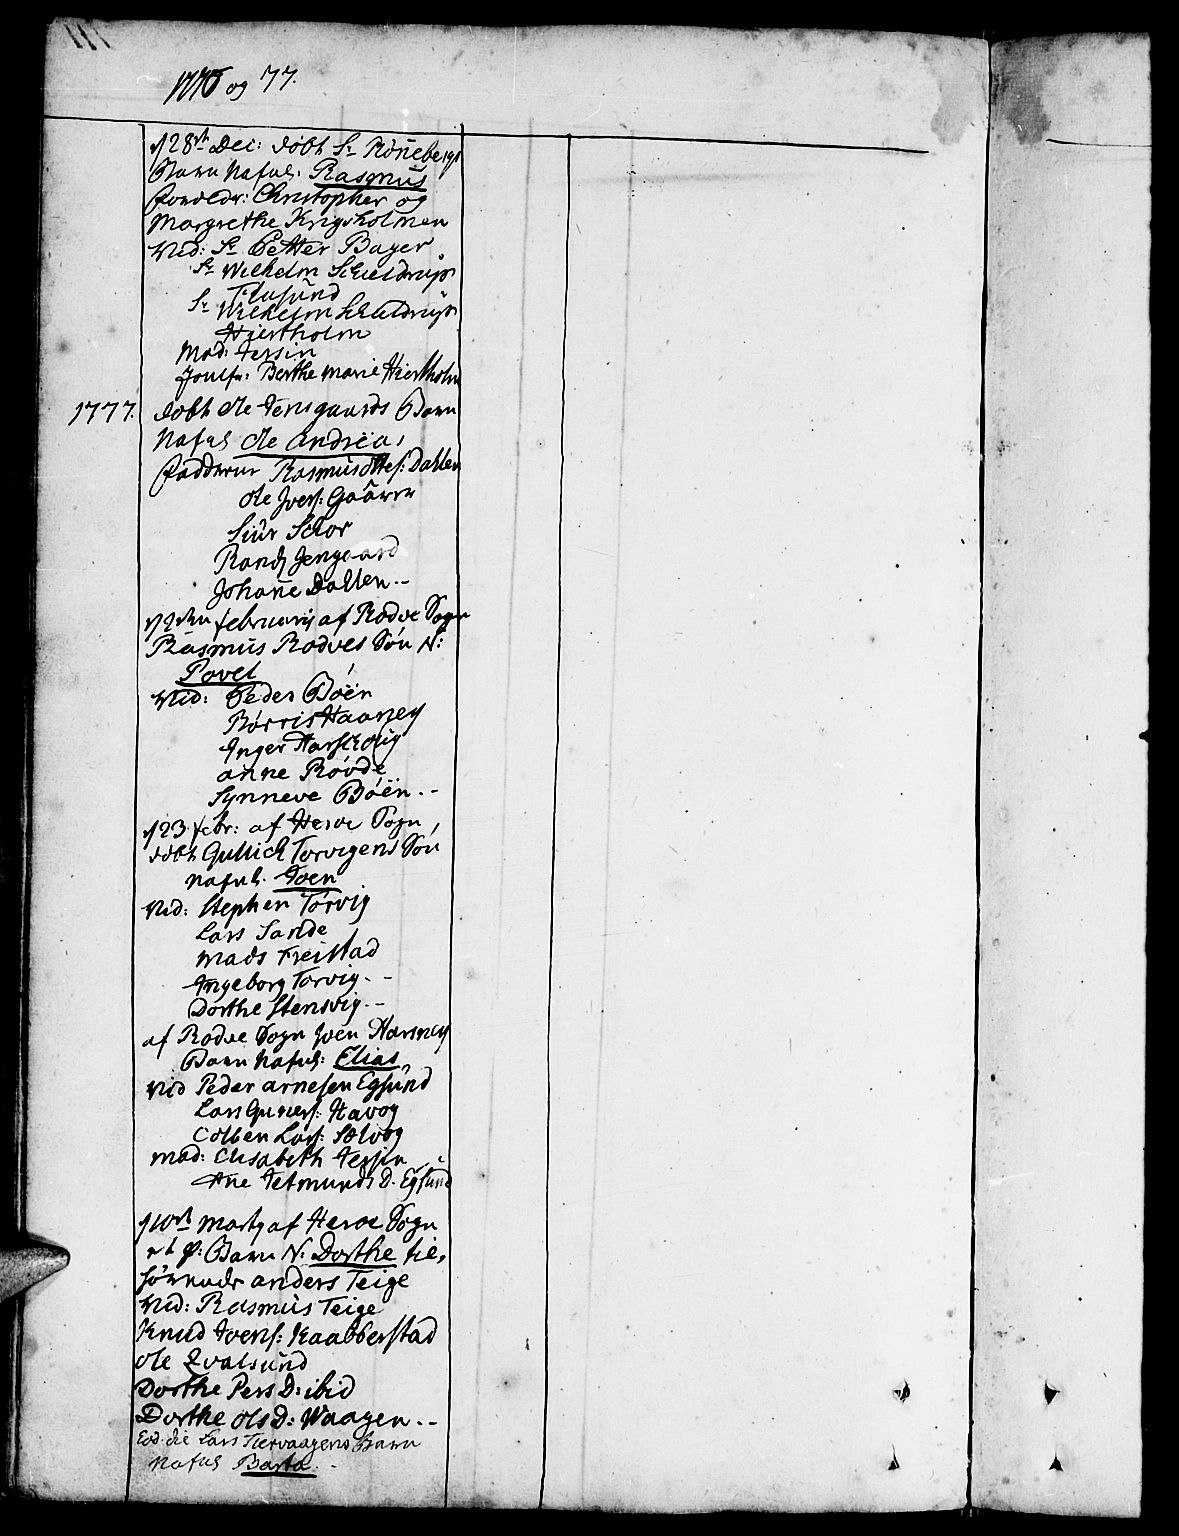 1776 og 77.
28de Dec: døbt Sr Rönebergs
Barn Nafnl: Rasmus
Foreldr: Christopher og
Margrethe Krigsholmen
Vid: Sr Petter Bager
Sr Wilhelm Schieldrup
Tilusund
Sr Wilhelm Schieldrup
Hiertholm
Mad: Jersin
Jomfr: Berthe Marie Hiertholm
1777. døbt Ole Jensgaards Barn
Nafnl Ole Andrëa,
Fadderne Rasmus Ottes: Dahlen
Ole Ivers: Gaarn
Siur Schor
Rand Jengaard
Johane Dahlen --
Februarij af Rødve Sogn
Rasmus Rødves Søn N:
Povel
Vid: Peder Böen
Börris Haaney
Inger Harschoug
Anne Rövde
Synneve Böen --
23 Febr: af Herøe Sogn
døbt Gullich Torvigens Søn
Nafnl. Joen
Vid: Stephen Torvig
Lars Sande
Mads Freistad
Ingeborg Torvig --
Dorthe Stensvig --
af Rødve Sogn Joen Harney
Barn Nafnl: Elias
Vid Peder Arnesen Egsund
Lars Guners: Havog
Colben Lars: Selvog
Mad: Elisabeth Jersin
Ane Jetmunds D. Egsund
Marty af Herøe Sogn
Barn N: Dorthe
Anders Teige
Vid: Rasmus Teige
Knud Joens: Kaabberstad
Ole Qvalsund
Dorthe Pers D: ibid
Dorthe Ols D: Waagen --
Eod: die Lars Tiervaagens Barn
Nafnl Barta --